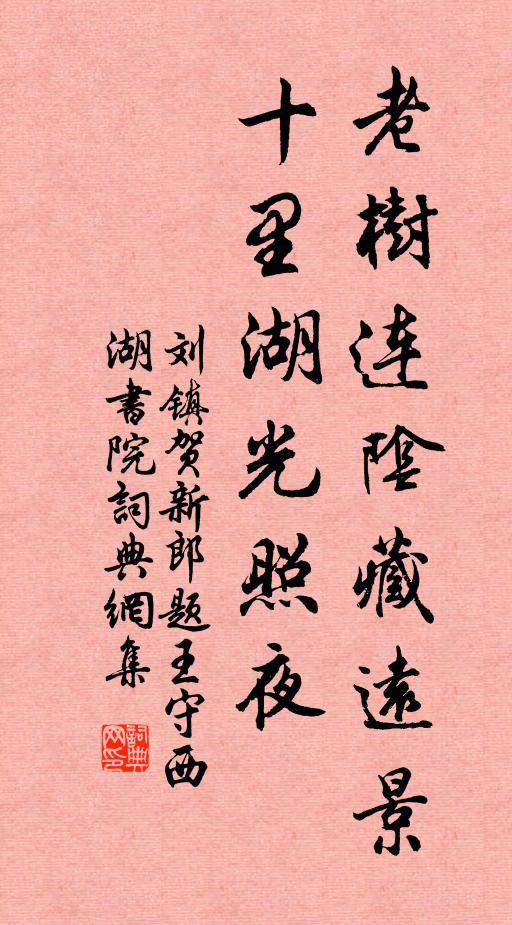 老樹连陰藏遠景
十里湖光照夜
刘镇贺新郎题王守西
湖書院詞典網集
詞典网印